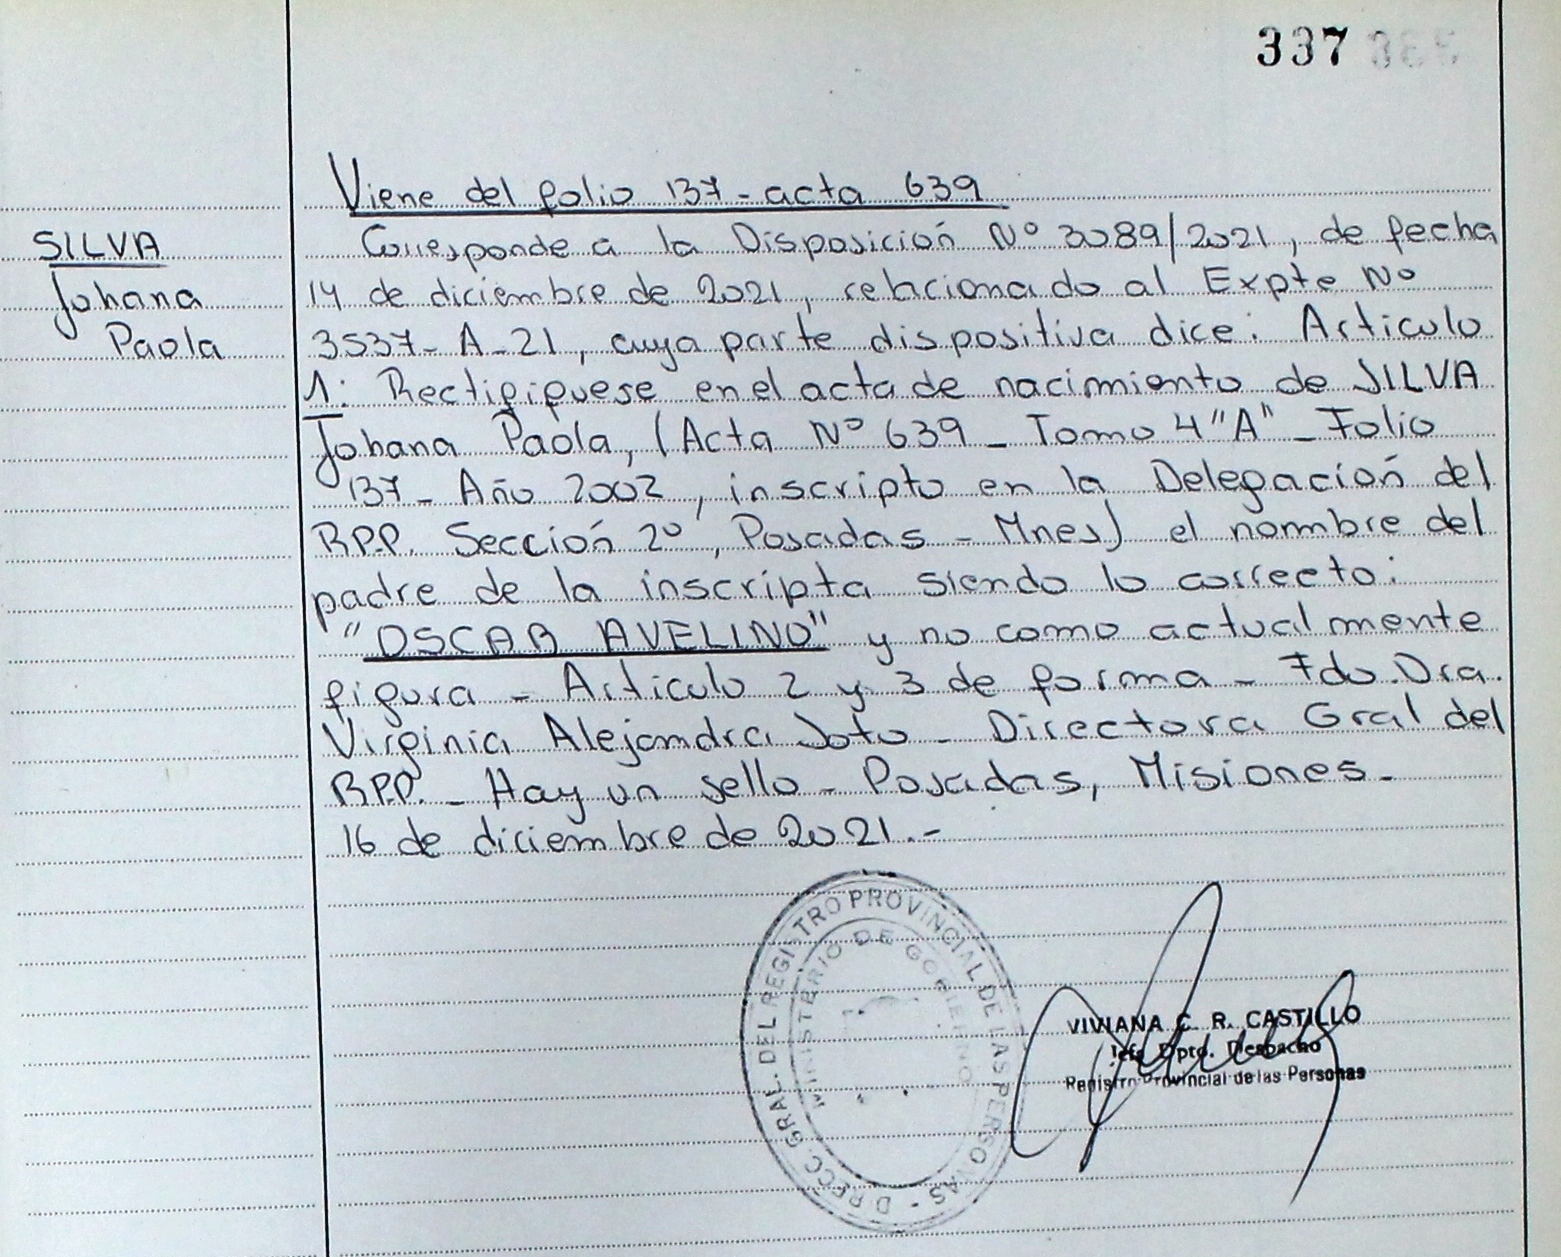 337 365
Viene del folio 137 - acta 639
SILVA
Johana
Paola
Corresponde a la Disposición Nº 3089/2021, de fecha
14 de diciembre de 2021, relacionado al Expte Nº
3537 - A - 21, cuya parte dispositiva dice: Articulo
1: Rectifiquese en el acta de nacimiento de SILVA
Johana Paola, (Acta Nº 639 - Tomo 4 "A" - Folio
137 - Año 2002, inscripto en la Delegación del
R.P.P. Sección 2º, Posadas - Mnes) el nombre del
padre de la inscripta siendo lo correcto:
"OSCAR AVELINO" y no como actualmente
figura - Articulo 2 y 3 de forma - Fdo. Dra.
Virginia Alejandra Soto - Directora Gral del
R.P.P. - Hay un sello - Posadas, Misiones.
16 de diciembre de 2021.-
DIRECC. GRAL. DEL REGISTRO PROVINCIAL DE LAS PERSONAS -
MINISTERIO DE GOBIERNO
VIVIANA C. R. CASTILLO
Jefa Dpto. Despacho
Registro Provincial de las Personas